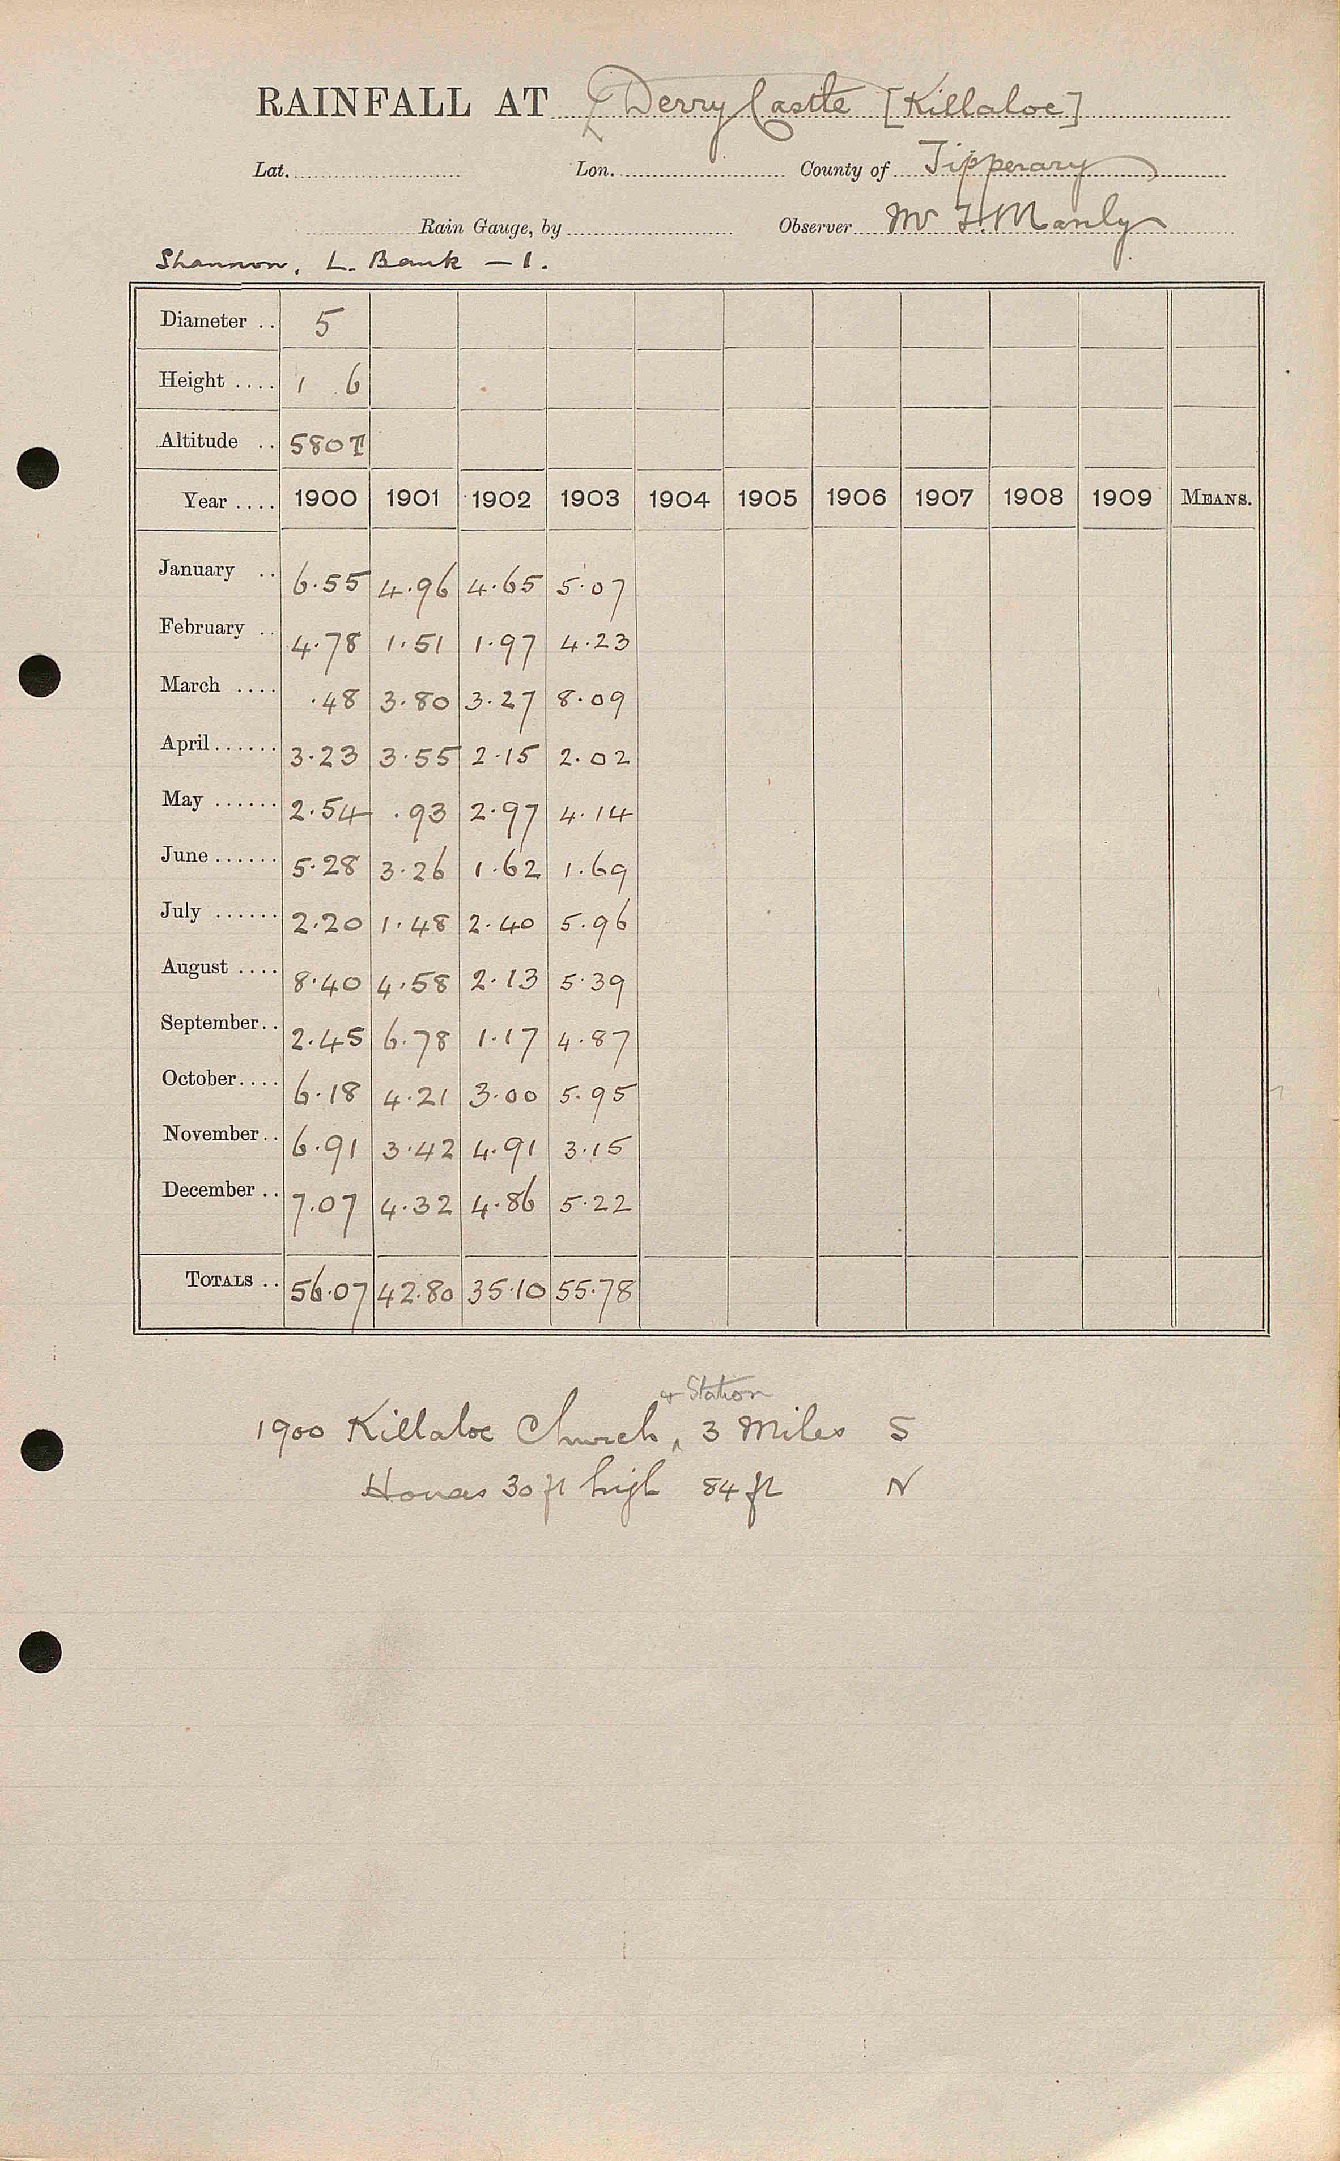 RAINFALL AT Derry Castle [Killaloe]
Lat. Lon. County of Tipperary
Rain Gauge, by Observer Mr F. Manly
Shannon, L. Bank — 1.
Diameter .. 5
Height .... 1 6
Altitude .. 580 T
Year .... 1900 1901 1902 1903 1904 1905 1906 1907 1908 1909 MEANS.
January .. 6.55 4.96 4.65 5.07
February .. 4.78 1.51 1.97 4.23
March .... .48 3.80 3.27 8.09
April ...... 3.23 3.55 2.15 2.02
May ...... 2.54 .93 2.97 4.14
June ...... 5.28 3.26 1.62 1.69
July ...... 2.20 1.48 2.40 5.96
August .... 8.40 4.58 2.13 5.39
September .. 2.45 6.78 1.17 4.87
October .... 6.18 4.21 3.00 5.95
November .. 6.91 3.42 4.91 3.15
December .. 7.07 4.32 4.86 5.22
TOTALS .. 56.07 42.80 35.10 55.78
& Station
1900 Killaloe Church, 3 Miles S
30 ft high 84 ft N